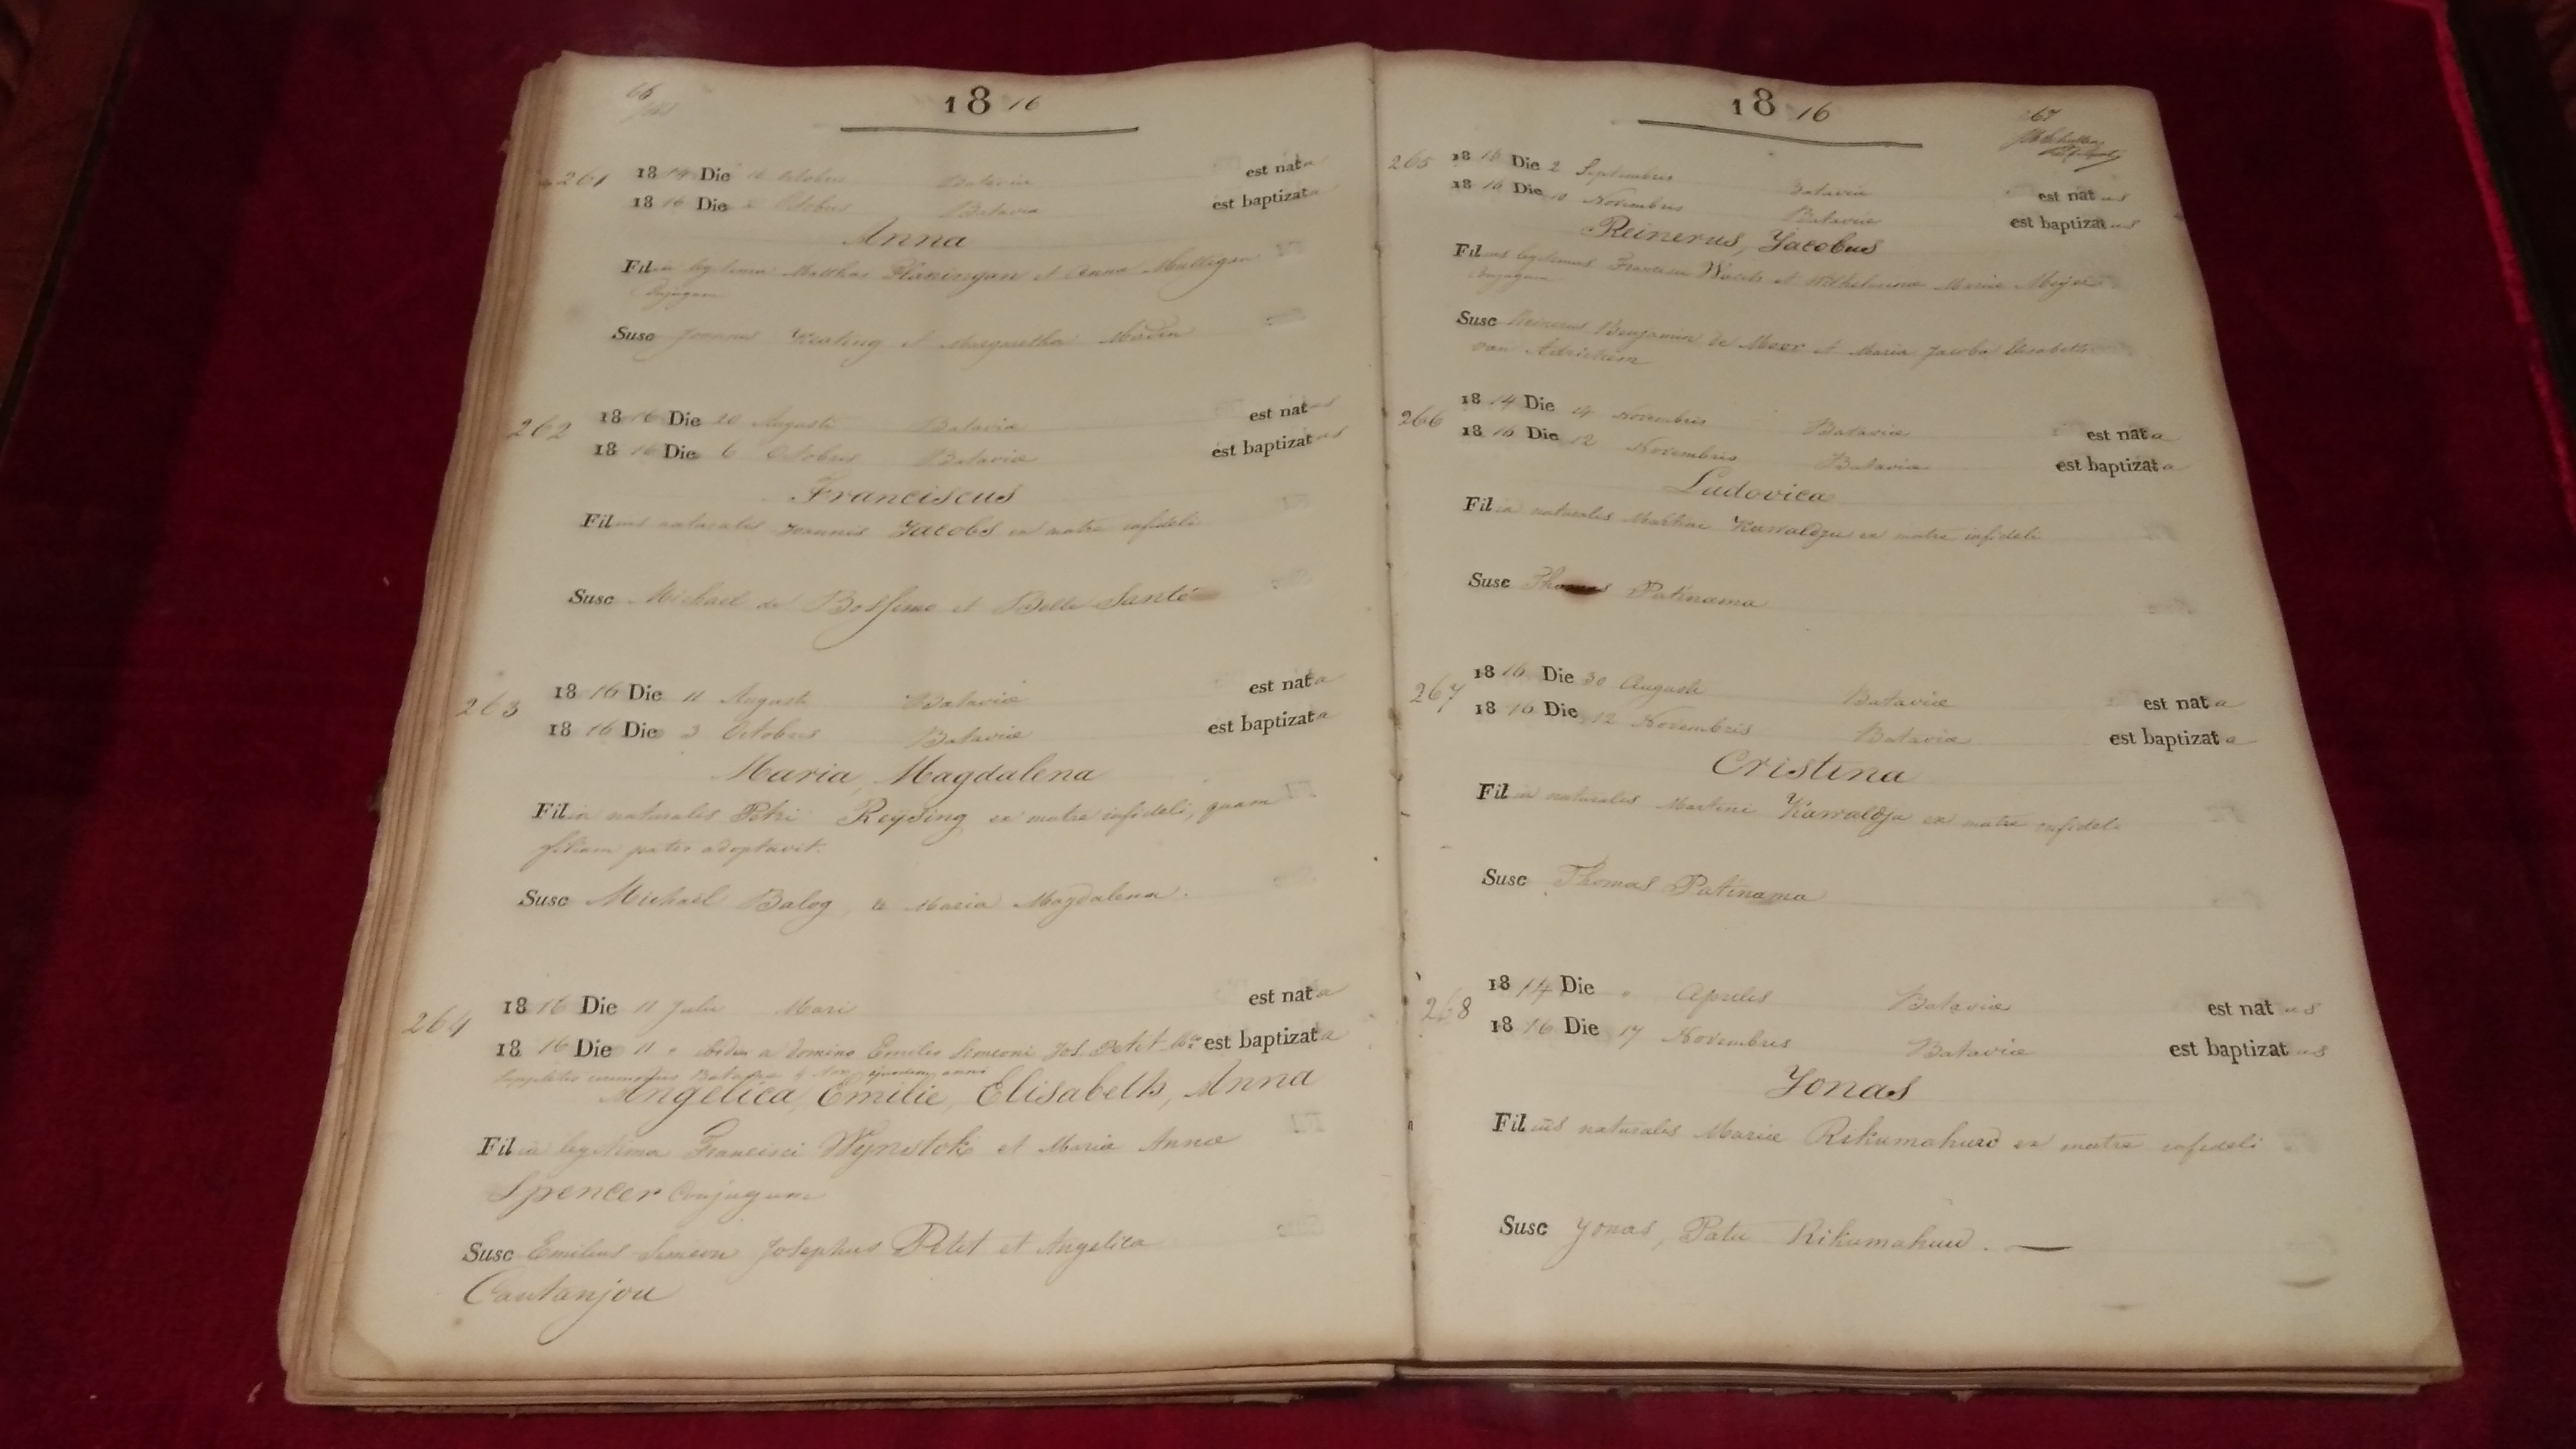 66
18 16
261 18 14 Die Octobris Bataviæ est nata
18 16 Die Octobris Bataviæ est baptizata
Anna
Filia legitima Mathæi Flaningan et Anna Mulligan
Conjugum
Susc Joannes Keating et Margaretha
262 18 16 Die 20 Augusti Bataviæ est natus
18 16 Die 6 Octobris Bataviæ est baptizatus
Franciscus
Filius naturalis Joannis Jacobs ex matre infideli
Susc Michael de et Belle Santé
263 18 16 Die 11 Augusti Bataviæ est nata
18 16 Die 3 Octobris Bataviæ est baptizata
Maria, Magdalena
Filia naturales Petri Reysing ex matre infideli, quam
filiam pater adoptavit.
Susc Michaël Balog, & Maria Magdalena.
264 18 16 Die 11 Julii Mari est nata
18 16 Die 11 " a domino Emilio Simeoni Jos. Petit est baptizata
Suppletis ceremoniis Bataviæ ejusdem anni
Angelica, Emilie, Elisabeth, Anna
Filia legitima Francisci Wynstok et Maria Annæ
Spencer Conjugum
Susc Emilius Simeon Josephus Petit et Angelica
Cantanjou
67
18 16
265 18 16 Die 2 Septembris Bataviæ est natus
18 16 Die 10 Novembris Bataviæ est baptizatus
Reinerus, Jacobus
Filius legitimus Francisci et Wilhelmina Mariæ Meijer
Conjugum
Susc Reinerus Benjamin de Meer et Maria Jacoba Elisabeth
van Adrichem
266 18 14 Die 14 Novembris Bataviæ est nata
18 16 Die 12 Novembris Bataviæ est baptizata
Ludovica
Filia naturales Kawaldju ex matre infideli
Susc Thomas Patinama
267 18 16 Die 30 Augusti Bataviæ est nata
18 16 Die 12 Novembris Bataviæ est baptizata
Cristina
Filia naturales Martini Kawaldju ex matre infideli
Susc Thomas Patinama
268 18 14 Die " Aprilis Bataviæ est natus
18 16 Die 17 Novembris Bataviæ est baptizatus
Jonas
Filius naturales Mariæ Rikumahuw ex matre infideli
Susc Jonas, Patu Rikumahuw.